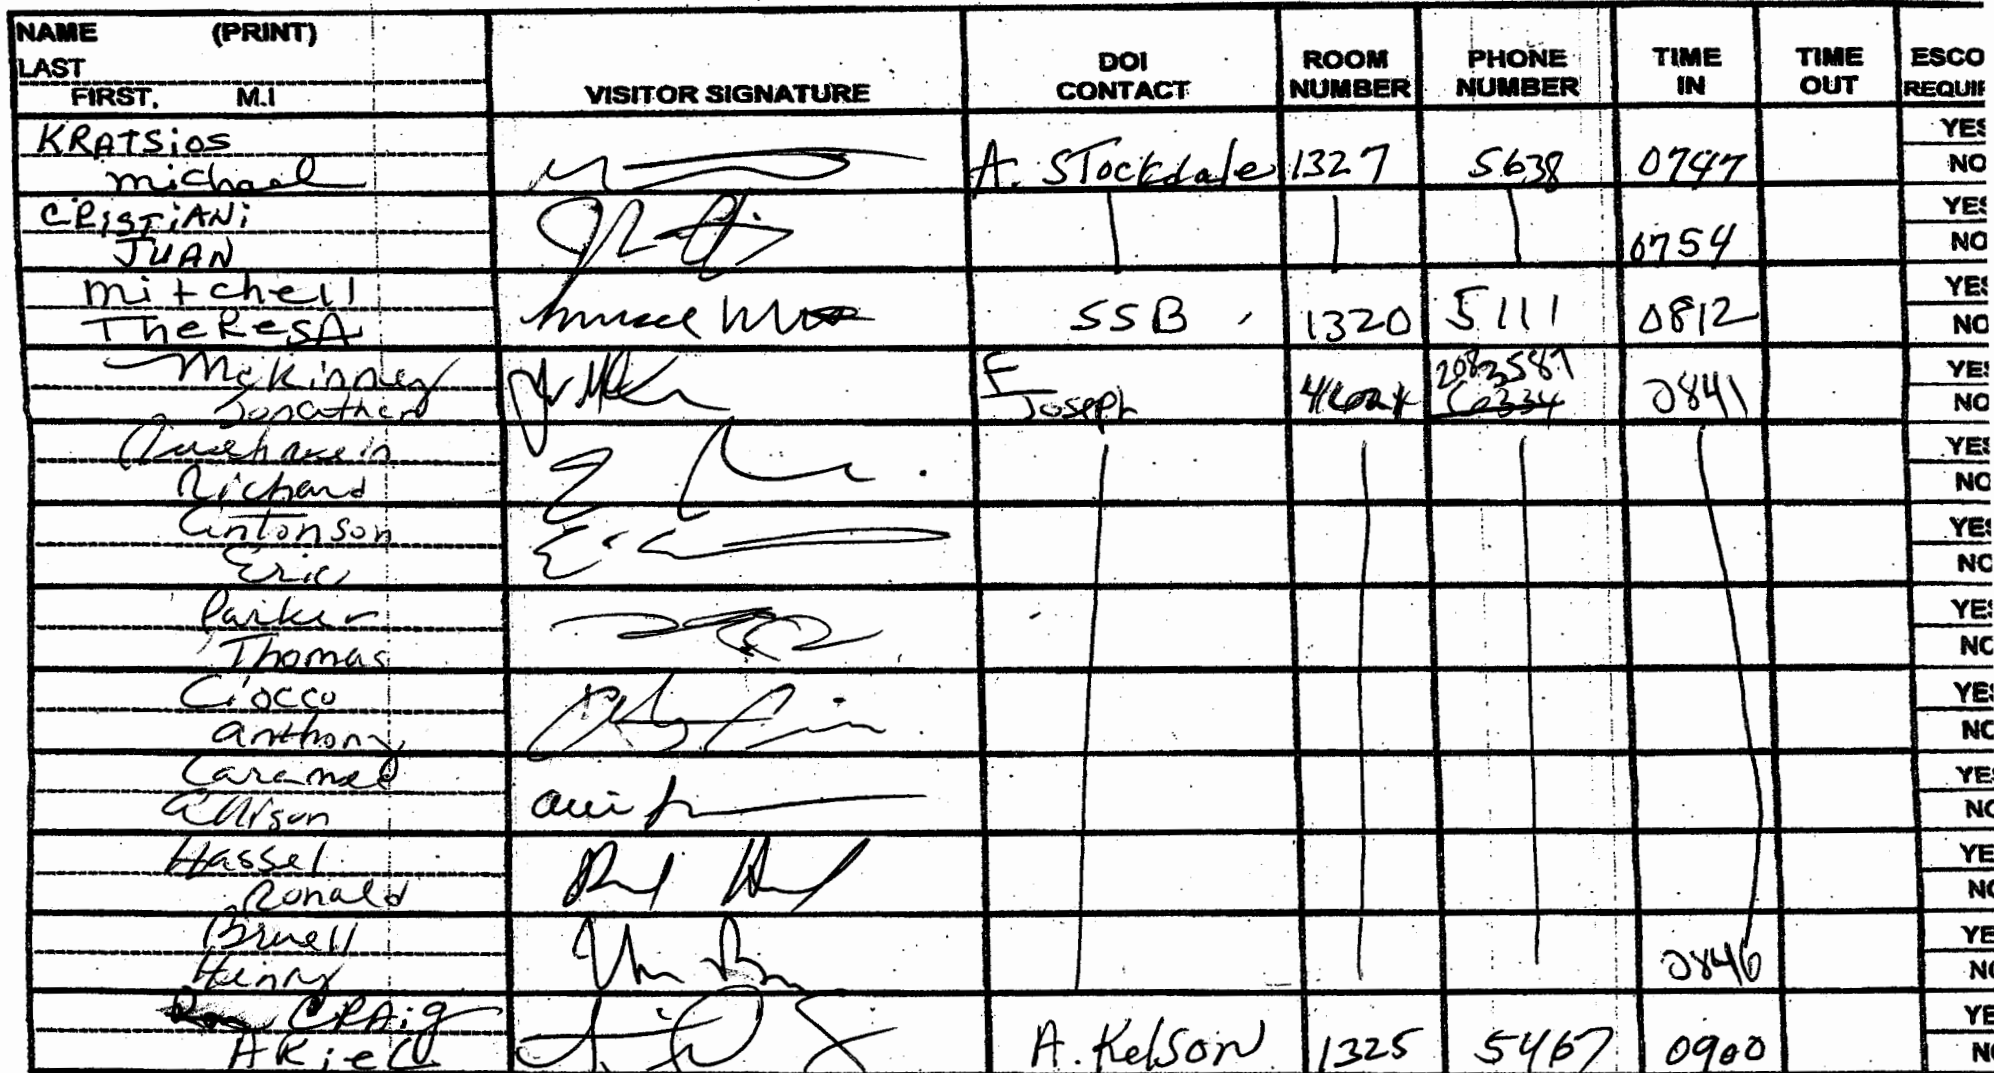 NAME (PRINT)
LAST
FIRST. M.I
VISITOR SIGNATURE
DOI CONTACT
ROOM NUMBER
PHONE NUMBER
TIME IN
TIME OUT
ESCO
REQUIR
KRATSIOS
Michael
A. Stockdale 1327 5638 0747
YES
NO
CRISTIANI
JUAN
0754
YES
NO
Mitchell
TheResA
SSB 1320 5111 0812
YES
NO
McKinney
Jonathan
F Joseph
2083587
0841
YES
NO
Richard
YES
NO
Antonson
Eric
YES
NO
Parker
Thomas
YES
NO
Ciocco
Anthony
YES
NO
Allison
YES
NO
Hassel
Ronald
YES
NO
Bruell
Henry
0846
YES
NO
CRAig
ARiel
A. Kelson 1325 5467 0900
YE
NO